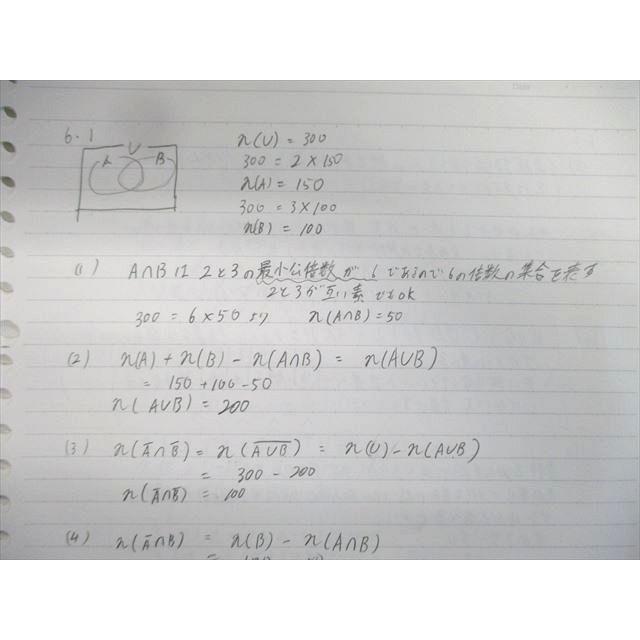 6.1
U
A B
n(U) = 300
300 = 2 × 150
n(A) = 150
300 = 3 × 100
n(B) = 100
(1) A∩Bは 2と3の最小公倍数が 6であるので6の倍数の集合を表す
2と3が互い素でもok
300 = 6×50 より n(A∩B)=50
(2) n(A) + n(B) - n(A∩B) = n(A∪B)
= 150 + 100 - 50
n(A∪B) = 200
(3) n(A̅∩B̅) = n(A̅∪̅B̅) = n(U) - n(A∪B)
= 300 - 200
n(A̅∩B̅) = 100
(4) n(A̅∩B) = n(B) - n(A∩B)